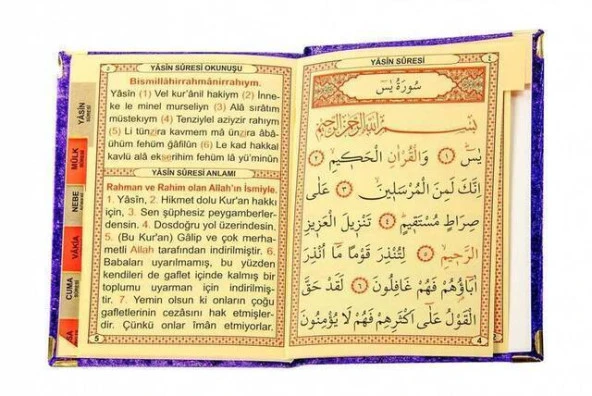 YÂSİN SÛRESİ OKUNUŞU
Bismillâhirrahmânirrahıym.
Yâsîn (1) Vel kur'ânil hakiym (2) İnne-
ke le minel murseliyn (3) Alâ sırâtım
müstekıym (4) Tenziylel aziyzir rahıym
(5) Li tünzira kavmem mâ ünzira âbâ-
ühüm fehüm ğâfilûn (6) Le kad hakkal
kavlü alâ ekserihim fehüm lâ yü'minûn
YÂSİN SÛRESİ ANLAMI
Rahman ve Rahim olan Allah'ın İsmiyle.
1. Yâsîn, 2. Hikmet dolu Kur'an hakkı
için, 3. Sen şüphesiz peygamberler-
densin. 4. Dosdoğru yol üzerindesin.
5. (Bu Kur'an) Gâlip ve çok merha-
metli Allah tarafından indirilmiştir. 6.
Babaları uyarılmamış, bu yüzden
kendileri de gaflet içinde kalmış bir
toplumu uyarman için indirilmiş-
tir. 7. Yemin olsun ki onların çoğu
gafletlerinin cezâsını hak etmişler-
dir. Çünkü onlar îmân etmiyorlar.
5
YÂSİN SÛRESİ
MÜLK SÛRESİ
NEBE SÛRESİ
VÂKIA SÛRESİ
CUMA SÛRESİ
YÂSİN SÛRESİ
٤
سُورَةُ يٰسٓ
بِسْمِ اللّٰهِ الرَّحْمٰنِ الرَّحِيمِ
يٰسٓ ﴿١﴾ وَالْقُرْاٰنِ الْحَكِيمِ ﴿٢﴾
اِنَّكَ لَمِنَ الْمُرْسَلِينَ ﴿٣﴾ عَلٰى
صِرَاطٍ مُسْتَقِيمٍ ﴿٤﴾ تَنْزِيلَ الْعَزِيزِ
الرَّحِيمِ ﴿٥﴾ لِتُنْذِرَ قَوْمًا مَٓا اُنْذِرَ
اٰبَٓاؤُهُمْ فَهُمْ غَافِلُونَ ﴿٦﴾ لَقَدْ حَقَّ
الْقَوْلُ عَلٰٓى اَكْثَرِهِمْ فَهُمْ لَا يُؤْمِنُونَ
4